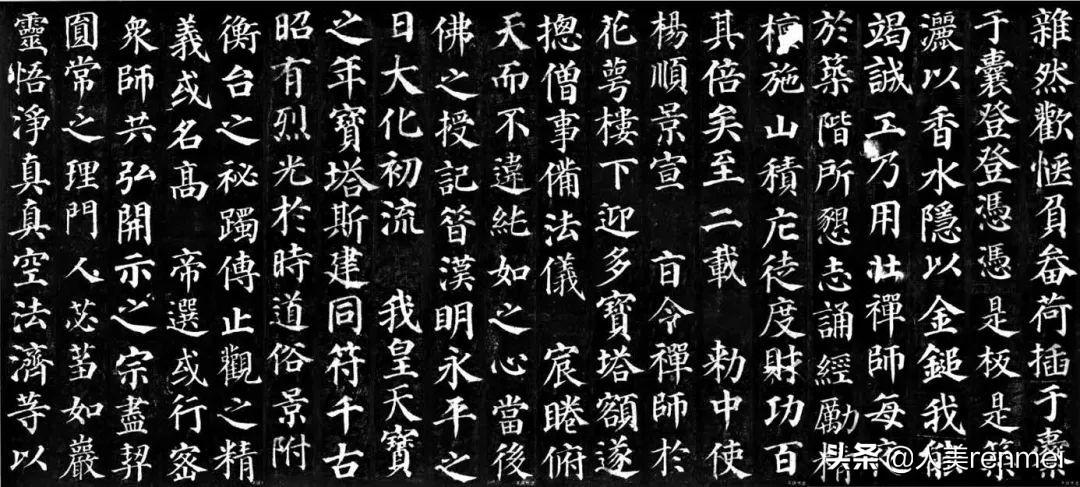 雜然歡愜負畚荷插于橐
于囊登登憑憑是板是築
灑以香水隱以金鎚我能
竭誠工乃用壯禪師每夜
於築階所懇志誦經勵精
檀施山積庀徒度財功百
其倍矣至二載 勑中使
楊順景宣 旨令禪師於
花萼樓下迎多寶塔額遂
摠僧事俻法儀 宸睠俯
天而不違純如之心當後
佛之授記昔漢明永平之
日大化初流 我皇天寶
之年寶塔斯建同符千古
昭有烈光於時道俗景附
衡台之祕躅傳止觀之精
義或名高 帝選或行密
衆師共弘開示之宗盡契
圎常之理門人苾蒭如巖
靈悟淨真真空法濟等以
头条@人美renmei